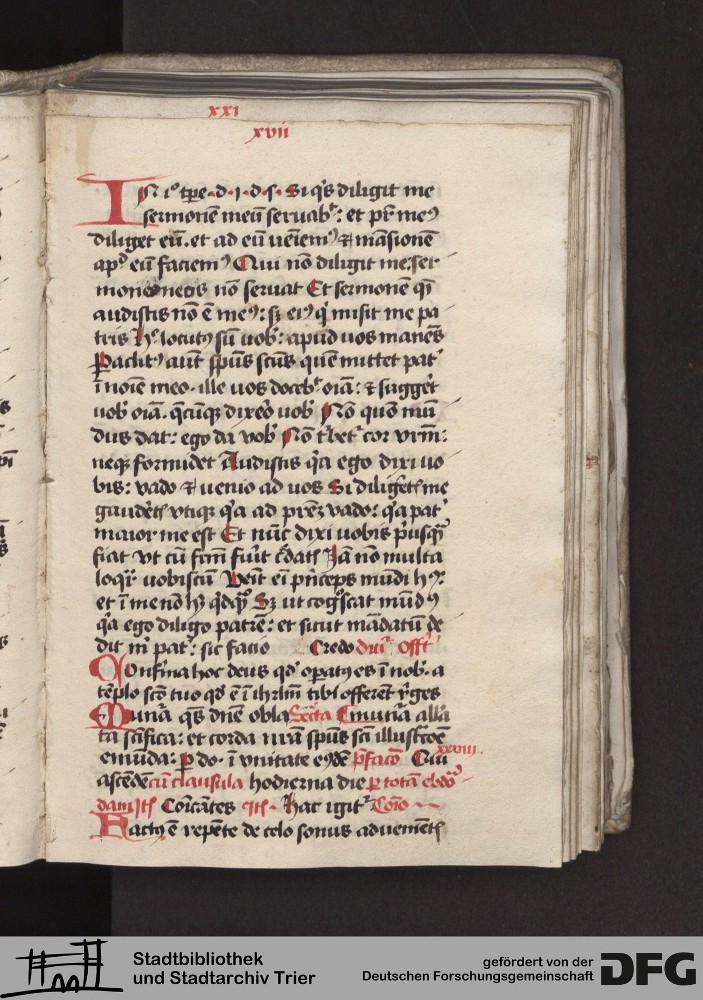 xxi
xvii
In i° tpe · d · i · d · s · Si q's diligit me
sermonē meū seruab' : et pr̄ me9
diliget eū . et ad eū veniem9 & māsionē
ap' eū faciem9 Qui nō diligit me : ser
mones meos nō seruat Et sermonē quē
audistis nō ē me9 : sz ei9 q' misit me pa
tris Hec locut9 sū uob' : apud uos manēs
Paaclit9 aut sp̄us sc̄us quē mittet pat'
ī noīe meo · ille uos doceb' oīa : & sugg'et
uob' oīa . q̄cūq3 dixero uob' Nō quo mū
dus dat : ego do vob' Nō t'bet' cor vr̄m :
neq3 formidet Audistis q'a ego dixi uo
bis : vado & uenio ad uos Si diliget' me
gaudet' vtiq3 q'a ad pr̄em vado : q'a pat'
maior me est Et nūc dixi uobis p'usq̄
fiat vt cū fc̄m fu'it c'dat' Iā nō multa
loqr' uobiscū Venit eī p'nceps mūdi h9 :
et ī me nō h3 q'dq̄ Sz ut cog'scat mūd9
q'a ego diligo patrē : et sicut mādatū de
dit m' pat' : sic facio Credo dr̄ Offt'
Confirma hoc deus qd' opat9 es ī nob' . a
tēplo sc̄o tuo qd' ē ī ihrlm̄ tibi offerēt r'ges
Munera q̄s dn̄e obla Sec'ta Cmunia alla
ta sc̄ifica : et corda nr̄a sp̄us sc̄i illustc̄oe
emūda : p do · ī vnitate eiusdē p̄facō Qui xxviii
ascēdē cū clausula hodierna die p totā ebdo
dam Itē Cōicātes Itē · Hac igit' Cōio
Fact9 ē repēte de celo sonus aduenient'
Stadtbibliothek
und Stadtarchiv Trier
gefördert von der
Deutschen Forschungsgemeinschaft
DFG